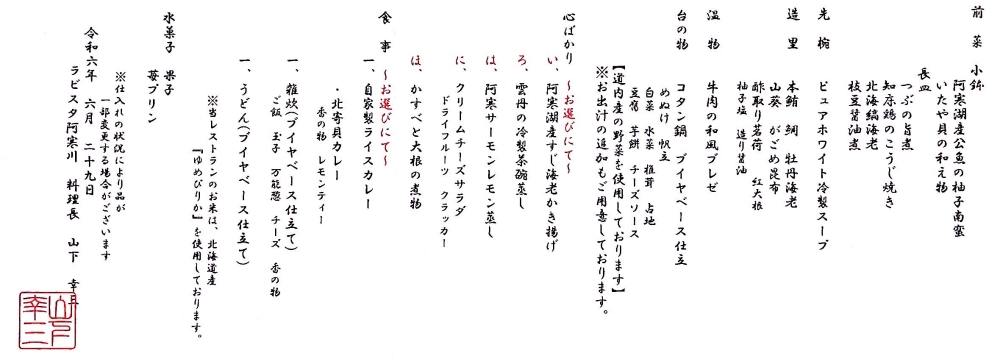 前菜 小鉢
阿寒湖産公魚の柚子南蛮
いたや貝の和え物
長皿
つぶの旨煮
知床鶏のこうじ焼き
北海縞海老
枝豆醤油煮
先椀 ピュアホワイト冷製スープ
造里 本鮪 鯛 牡丹海老
山葵 がごめ昆布
酢取り茗荷 紅大根
柚子塩 造り醤油
温物 牛肉の和風ブレゼ
台の物 コタン鍋 ブイヤベース仕立
めぬけ 帆立
白菜 水菜 椎茸 占地
豆腐 芋餅 チーズソース
【道内産の野菜を使用しております】
※お出汁の追加もご用意しております。
心ばかり ~お選びにて~
い、阿寒湖産すじ海老かき揚げ
ろ、雲丹の冷製茶碗蒸し
は、阿寒サーモンレモン蒸し
に、クリームチーズサラダ
ドライフルーツ クラッカー
ほ、かすべと大根の煮物
食事 ~お選びにて~
一、自家製ライスカレー
・北寄貝カレー
香の物 レモンティー
一、雑炊(ブイヤベース仕立て)
ご飯 玉子 万能葱 チーズ 香の物
一、うどん(ブイヤベース仕立て)
※当レストランのお米は、北海道産
『ゆめぴりか』を使用しております。
水菓子 果子
苺プリン
※仕入れの状況により品が
一部変更する場合がございます
令和六年 六月 二十九日
ラビスタ阿寒川 料理長 山下 幸
山下
幸三